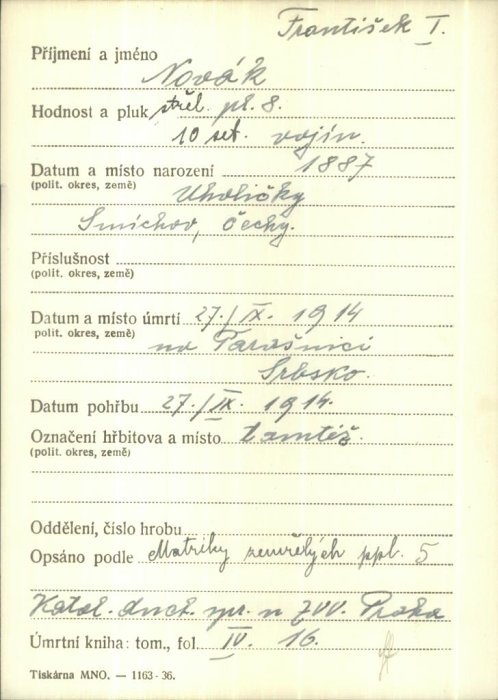 František I.
Příjmení a jméno
Novák
Hodnost a pluk střel. pl. 8.
10 set. vojín.
Datum a místo narození 1887
(polit. okres, země)
Uholičky
Smíchov, Čechy.
Příslušnost
(polit. okres, země)
Datum a místo úmrtí 27./IX. 1914
polit. okres, země)
na Parašnici
Srbsko.
Datum pohřbu 27./IX. 1914.
Označení hřbitova a místo tamtéž.
(polit. okres, země)
Oddělení, číslo hrobu
Opsáno podle Matriky zemřelých ppl. 5
Katol. duch. spr. u ZVV. Praha
Úmrtní kniha: tom., fol. IV. 16.
Tiskárna MNO. — 1163-36.